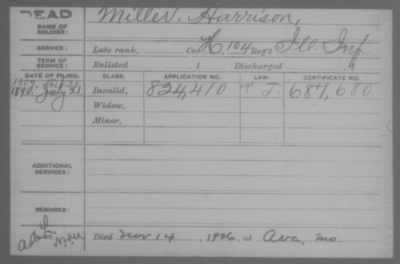 DEAD
NAME OF SOLDIER: Miller, Harrison,
SERVICE: Late rank, Co. K, 104 Reg't Ill. Inf.
TERM OF SERVICE: Enlisted , 1 Discharged , 1
DATE OF FILING. CLASS. APPLICATION NO. LAW. CERTIFICATE NO.
1890. July 21 Invalid, 824,410 687,680
Widow,
Minor,
ADDITIONAL SERVICES:
REMARKS:
Died Nov 14, 1926, at Ava, Mo.